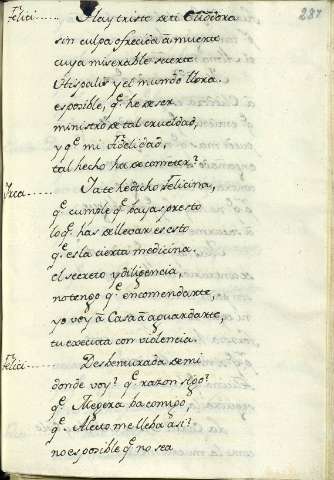 287
Felici...... Ay triste de ti Eliodora
sin culpa ofrecida à muerte
cuya miserable suerte
Utispalis y el mundo llora.
esposible, q.e he de ser
ministro de tal crueldad,
y q.e mi fidelidad,
tal hecho ha de cometer?
Irca...... Ya te he dicho Felicina,
q.e cumple q.e vaya presto
lo q.e has de llevar es esto
q.e es la cierta medicina.
el secreto y diligencia,
no tengo q.e encomendarte,
yo voy à Casa à aguardarte,
tu executa con violencia.
Felici...... Desbenturada de mi
donde voy? q.e razon sigo?
q.e Megera ba comigo,
q.e Alecto me lleba asi?
no es posible q.e no sea